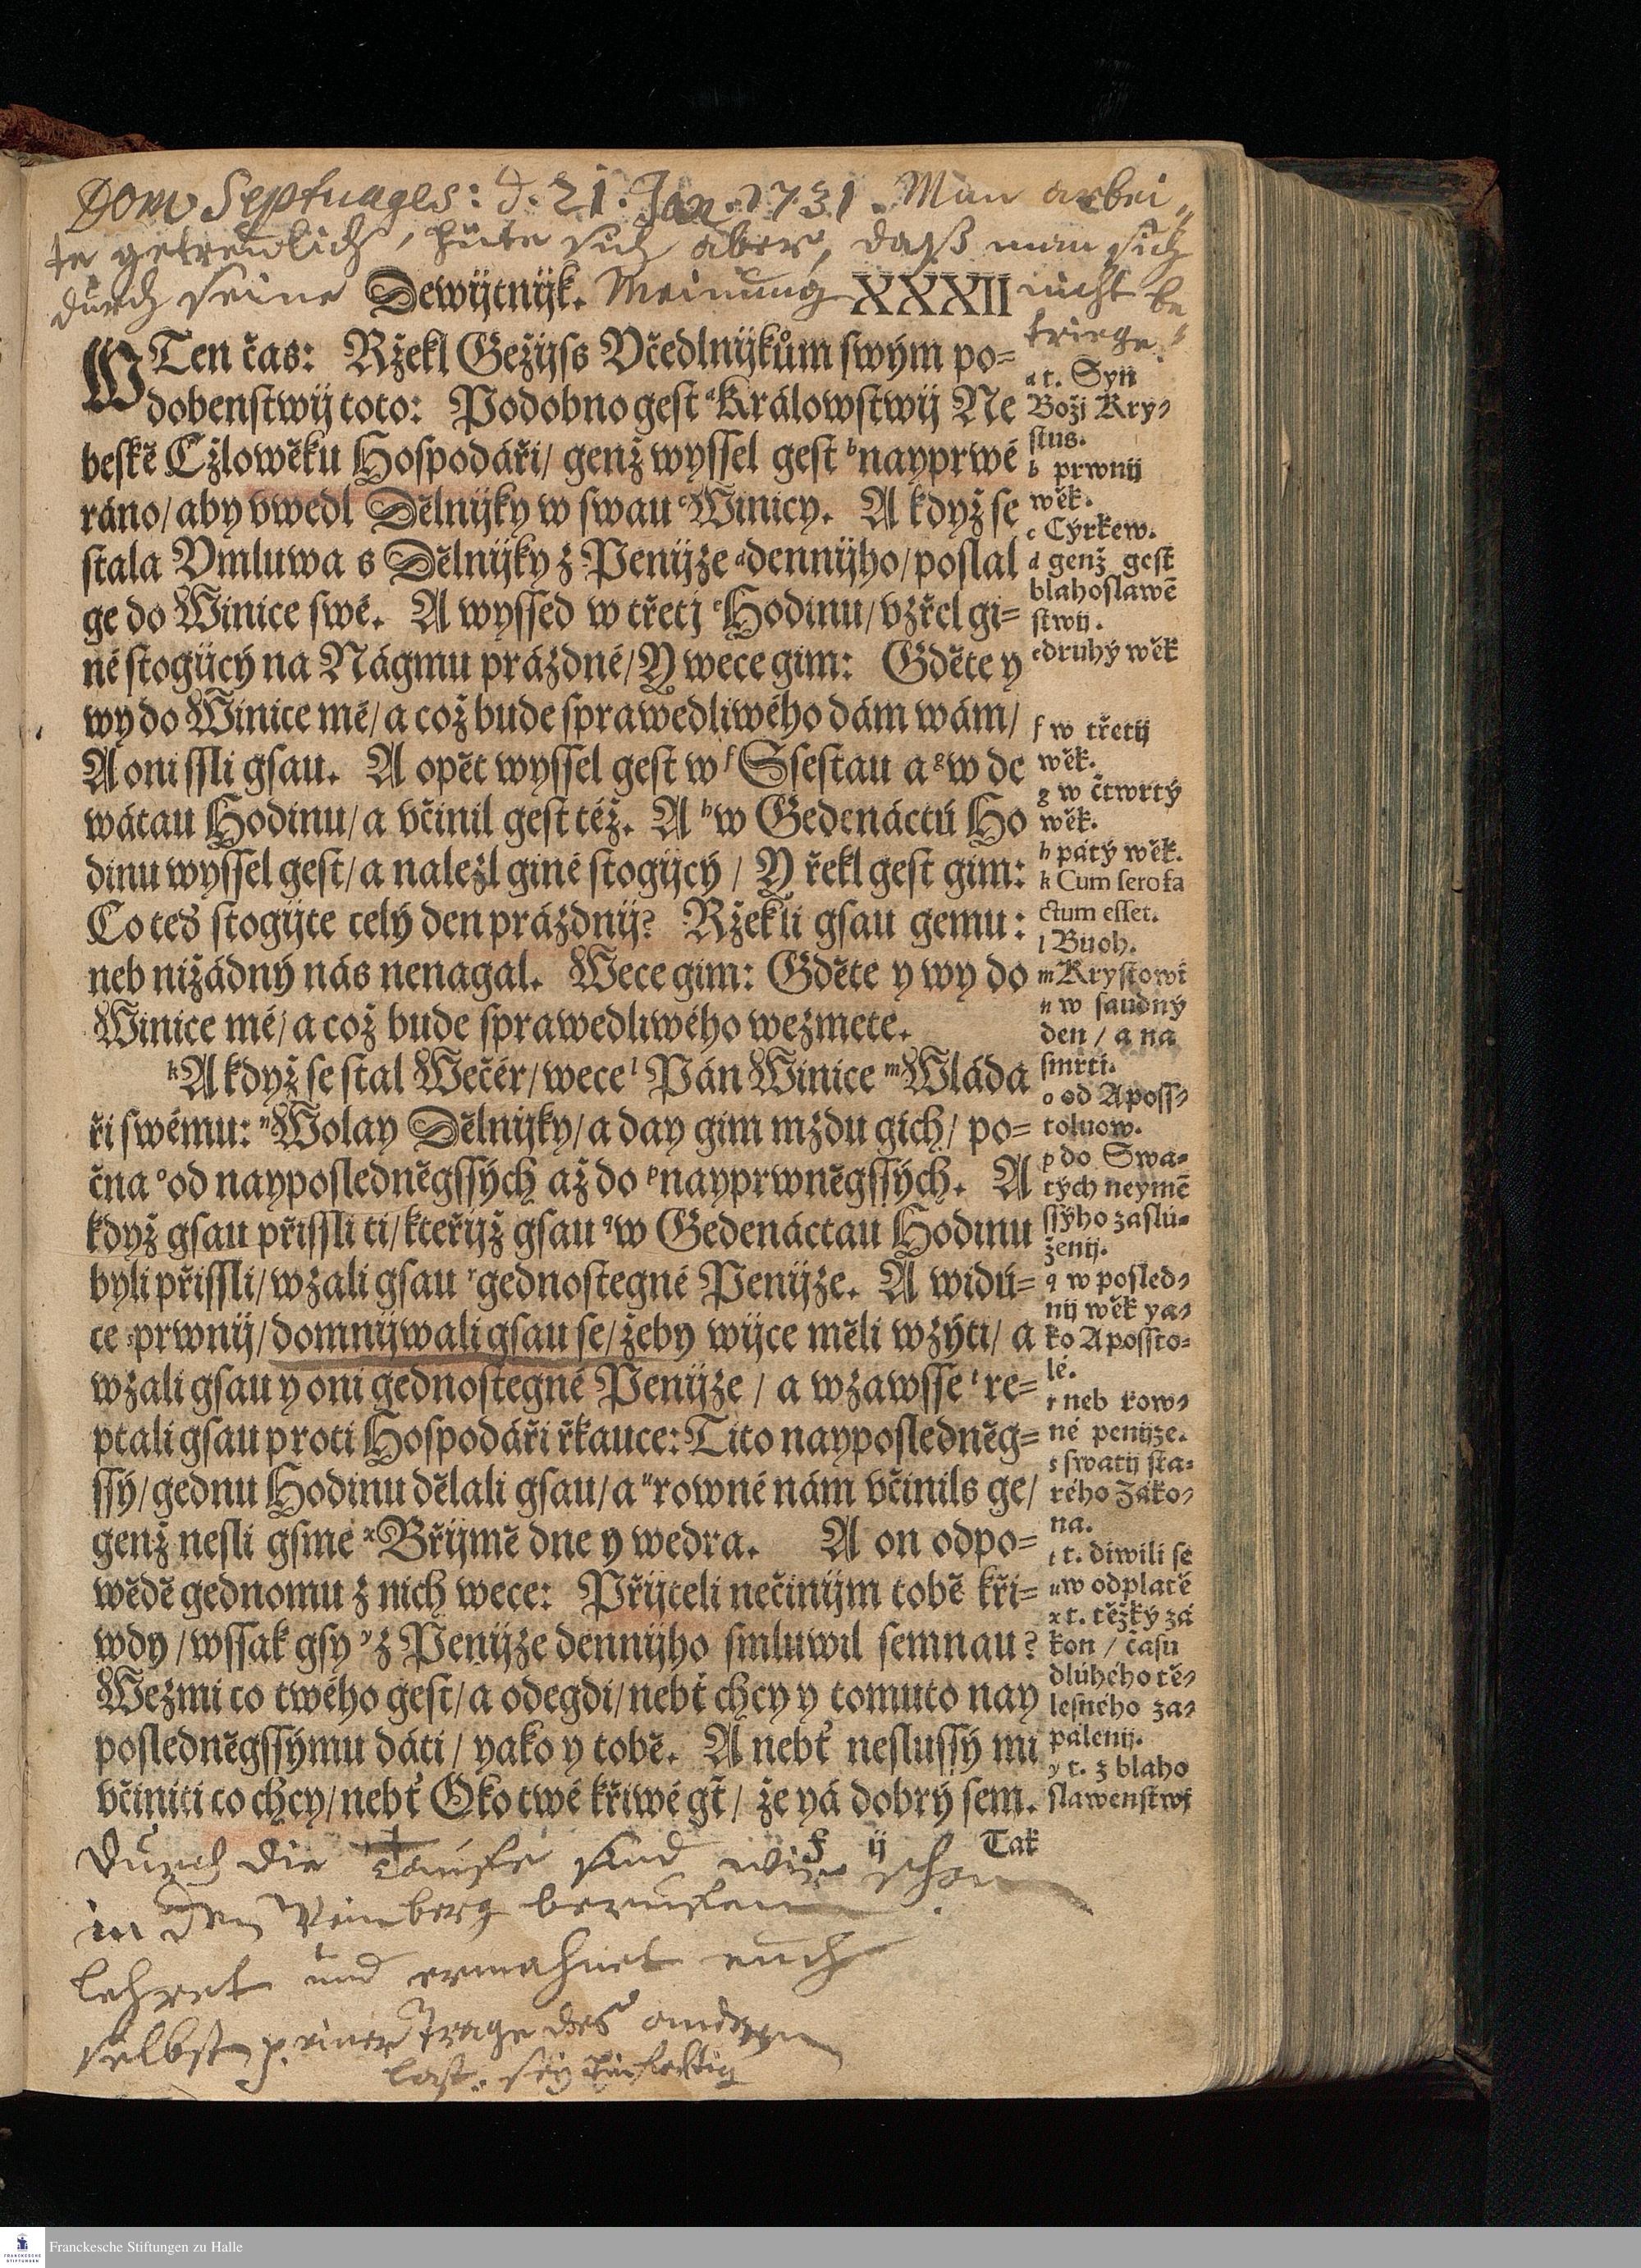 Dom Septuages: d. 21. Jan. 1731. Man arbei„
te getreulich, hüte sich aber, daß man sich
durch seine Dewijtnijk. Meinung XXXII nicht be„
triege.
W Ten čas: Ržekl Gežijss Včedlnijkům swým po=
dobenstwij toto: Podobno gest ᵃKrálowstwij Ne
beskě Cžlowěku Hospodáři/ genž wyssel gest ᵇnayprwé
ráno/ aby vwedl Dělnijky w swau ᶜWinicy. A když se
stala Vmluwa s Dělnijky z Penijze ᵈdennijho/ poslal
ge do Winice swé. A wyssed w třetj ᵉHodinu/ vzřel gi=
né stogijcý na Nágmu prázdné/ Y wece gim: Gděte y
wy do Winice mé/ a což bude sprawedliwého dám wám/
A oni ssli gsau. A opět wyssel gest w ᶠSsestau a ᵍw de
wátau Hodinu/ a včinil gest též. A ʰw Gedenáctú Ho
dinu wyssel gest/ a nalezl giné stogijcý / Y řekl gest gim:
Co teď stogijte celý den prázdnij? Ržekli gsau gemu:
neb nižádný nás nenagal. Wece gim: Gděte y wy do
Winice mé/ a což bude sprawedliwého wezmete.
ᵏA když se stal Wečér/ wece ˡPán Winice ᵐWláda
ři swému: ⁿWolay Dělnijky/ a day gim mzdu gich/ po=
čna ᵒod nayposledněgssých až do ᵖnayprwněgssých. A
když gsau přissli ti/ kteřijž gsau ᑫw Gedenáctau Hodinu
byli přissli/ wzali gsau ʳgednostegné Penijze. A widú=
ce ˢprwnij/ domnijwali gsau se/ žeby wijce měli wzýti/ a
wzali gsau y oni gednostegné Penijze / a wzawsse ᵗre=
ptali gsau proti Hospodáři řkauce: Tito nayposledněg=
ssý/ gednu Hodinu dělali gsau/ a ᵘrowné nám včinils ge/
genž nesli gsme ˣBřijmě dne y wedra. A on odpo=
wědě gednomu z nich wece: Přijteli nečinijm tobě kři=
wdy / wssak gsy ʸz Penijze dennijho smluwil semnau?
Wezmi co twého gest/ a odegdi/ nebť chcy y tomuto nay
posledněgssýmu dáti / yako y tobě. A nebť neslussý mi
včiniti co chcy/ nebť Oko twé křiwé gť / že yá dobrý sem.
f ij Tak
a t. Syn
Boži Kry⸗
stus.
b prwnij
wěk.
c Cýrkew.
d genž gest
blahoslawē
stwij.
e druhý wěk
f w třetij
wěk.
g w čtwrtý
wěk.
h pátý wěk.
k Cum sero fa
ctum esset.
l Buoh.
m Krystowi
n w saudný
den / a na
smrti.
o od Aposs⸗
toluow.
p do Swa=
tých neymē
ssýho zaslu=
ženij.
q w posled⸗
nij wěk ya⸗
ko Aposšto=
lé.
r neb row⸗
né penijze.
s swatij sta=
rého Záko⸗
na.
t t. diwili se
u w odplatě
x t. těžký zá
kon / času
dlúhého tě⸗
lesného za⸗
pálenij.
y t. z blaho
slawenstwj
Durch die Taufe sind wir schon
in den Weinberg berufen.
lehret und ermahnet euch
selbst p. einer trage des andern
last. sey